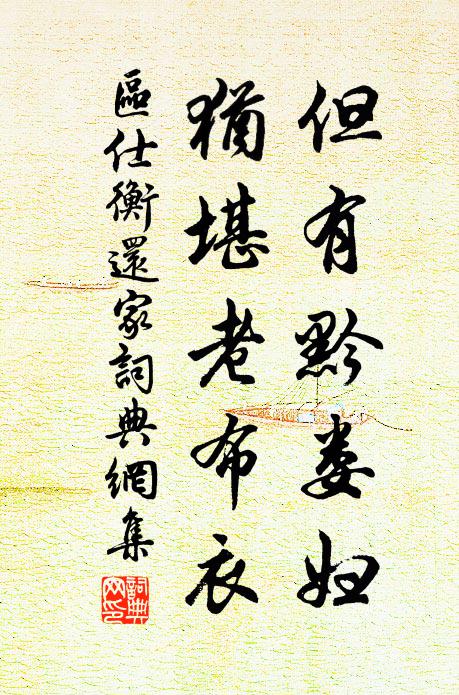 但有黔婁婦
猶堪老布衣
區仕衡還家詞典網集
詞典網印